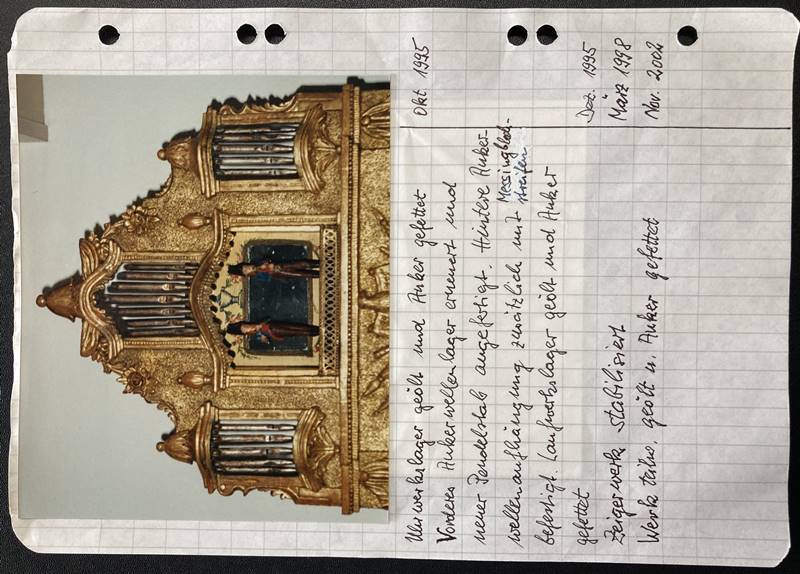 Uhrwerkslager geölt und Anker gefettet Okt 1995
Vorderes Ankerwellenlager erneuert und
neuer Pendelstab angefertigt. Hintere Anker-
wellenaufhängung zusätzlich mit Messingblech-
streifen
befestigt. Laufwerkslager geölt und Anker
gefettet Dez. 1995
Zeigerwerk stabilisiert März 1998
Werk teilw. geölt u. Anker gefettet Nov. 2002